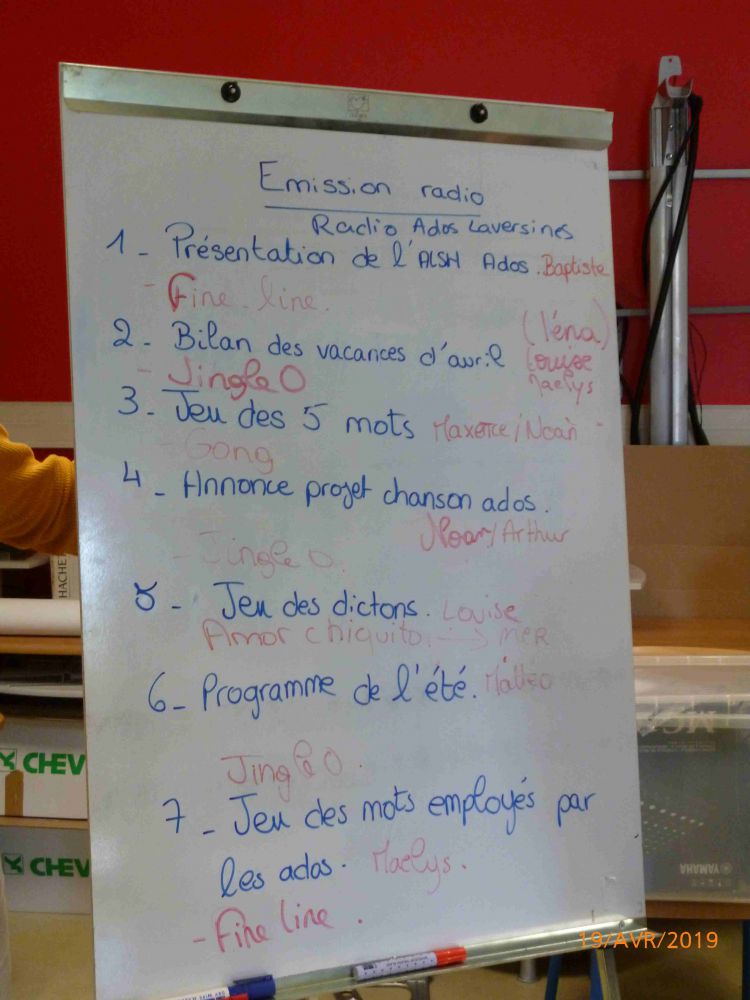 Emission radio
Radio Ados Laversines
1 - Présentation de l'ALSH Ados. Baptiste
- Fine line.
2 - Bilan des vacances d'avril (léna)
Louise
Maelys
- Jingle O
3 - Jeu des 5 mots Maxence/Noan
- Gong
4 - Annonce projet chanson ados.
Noan/Arthur
- Jingle O.
5 - Jeu des dictons. Louise
Amor chiquito. → MER
6 - Programme de l'été. Mattéo
Jingle O.
7 - Jeu des mots employés par
les ados. Maelys.
- Fine line.
HACHE
CHEV
CHEV
YAMAHA
19/AVR/2019